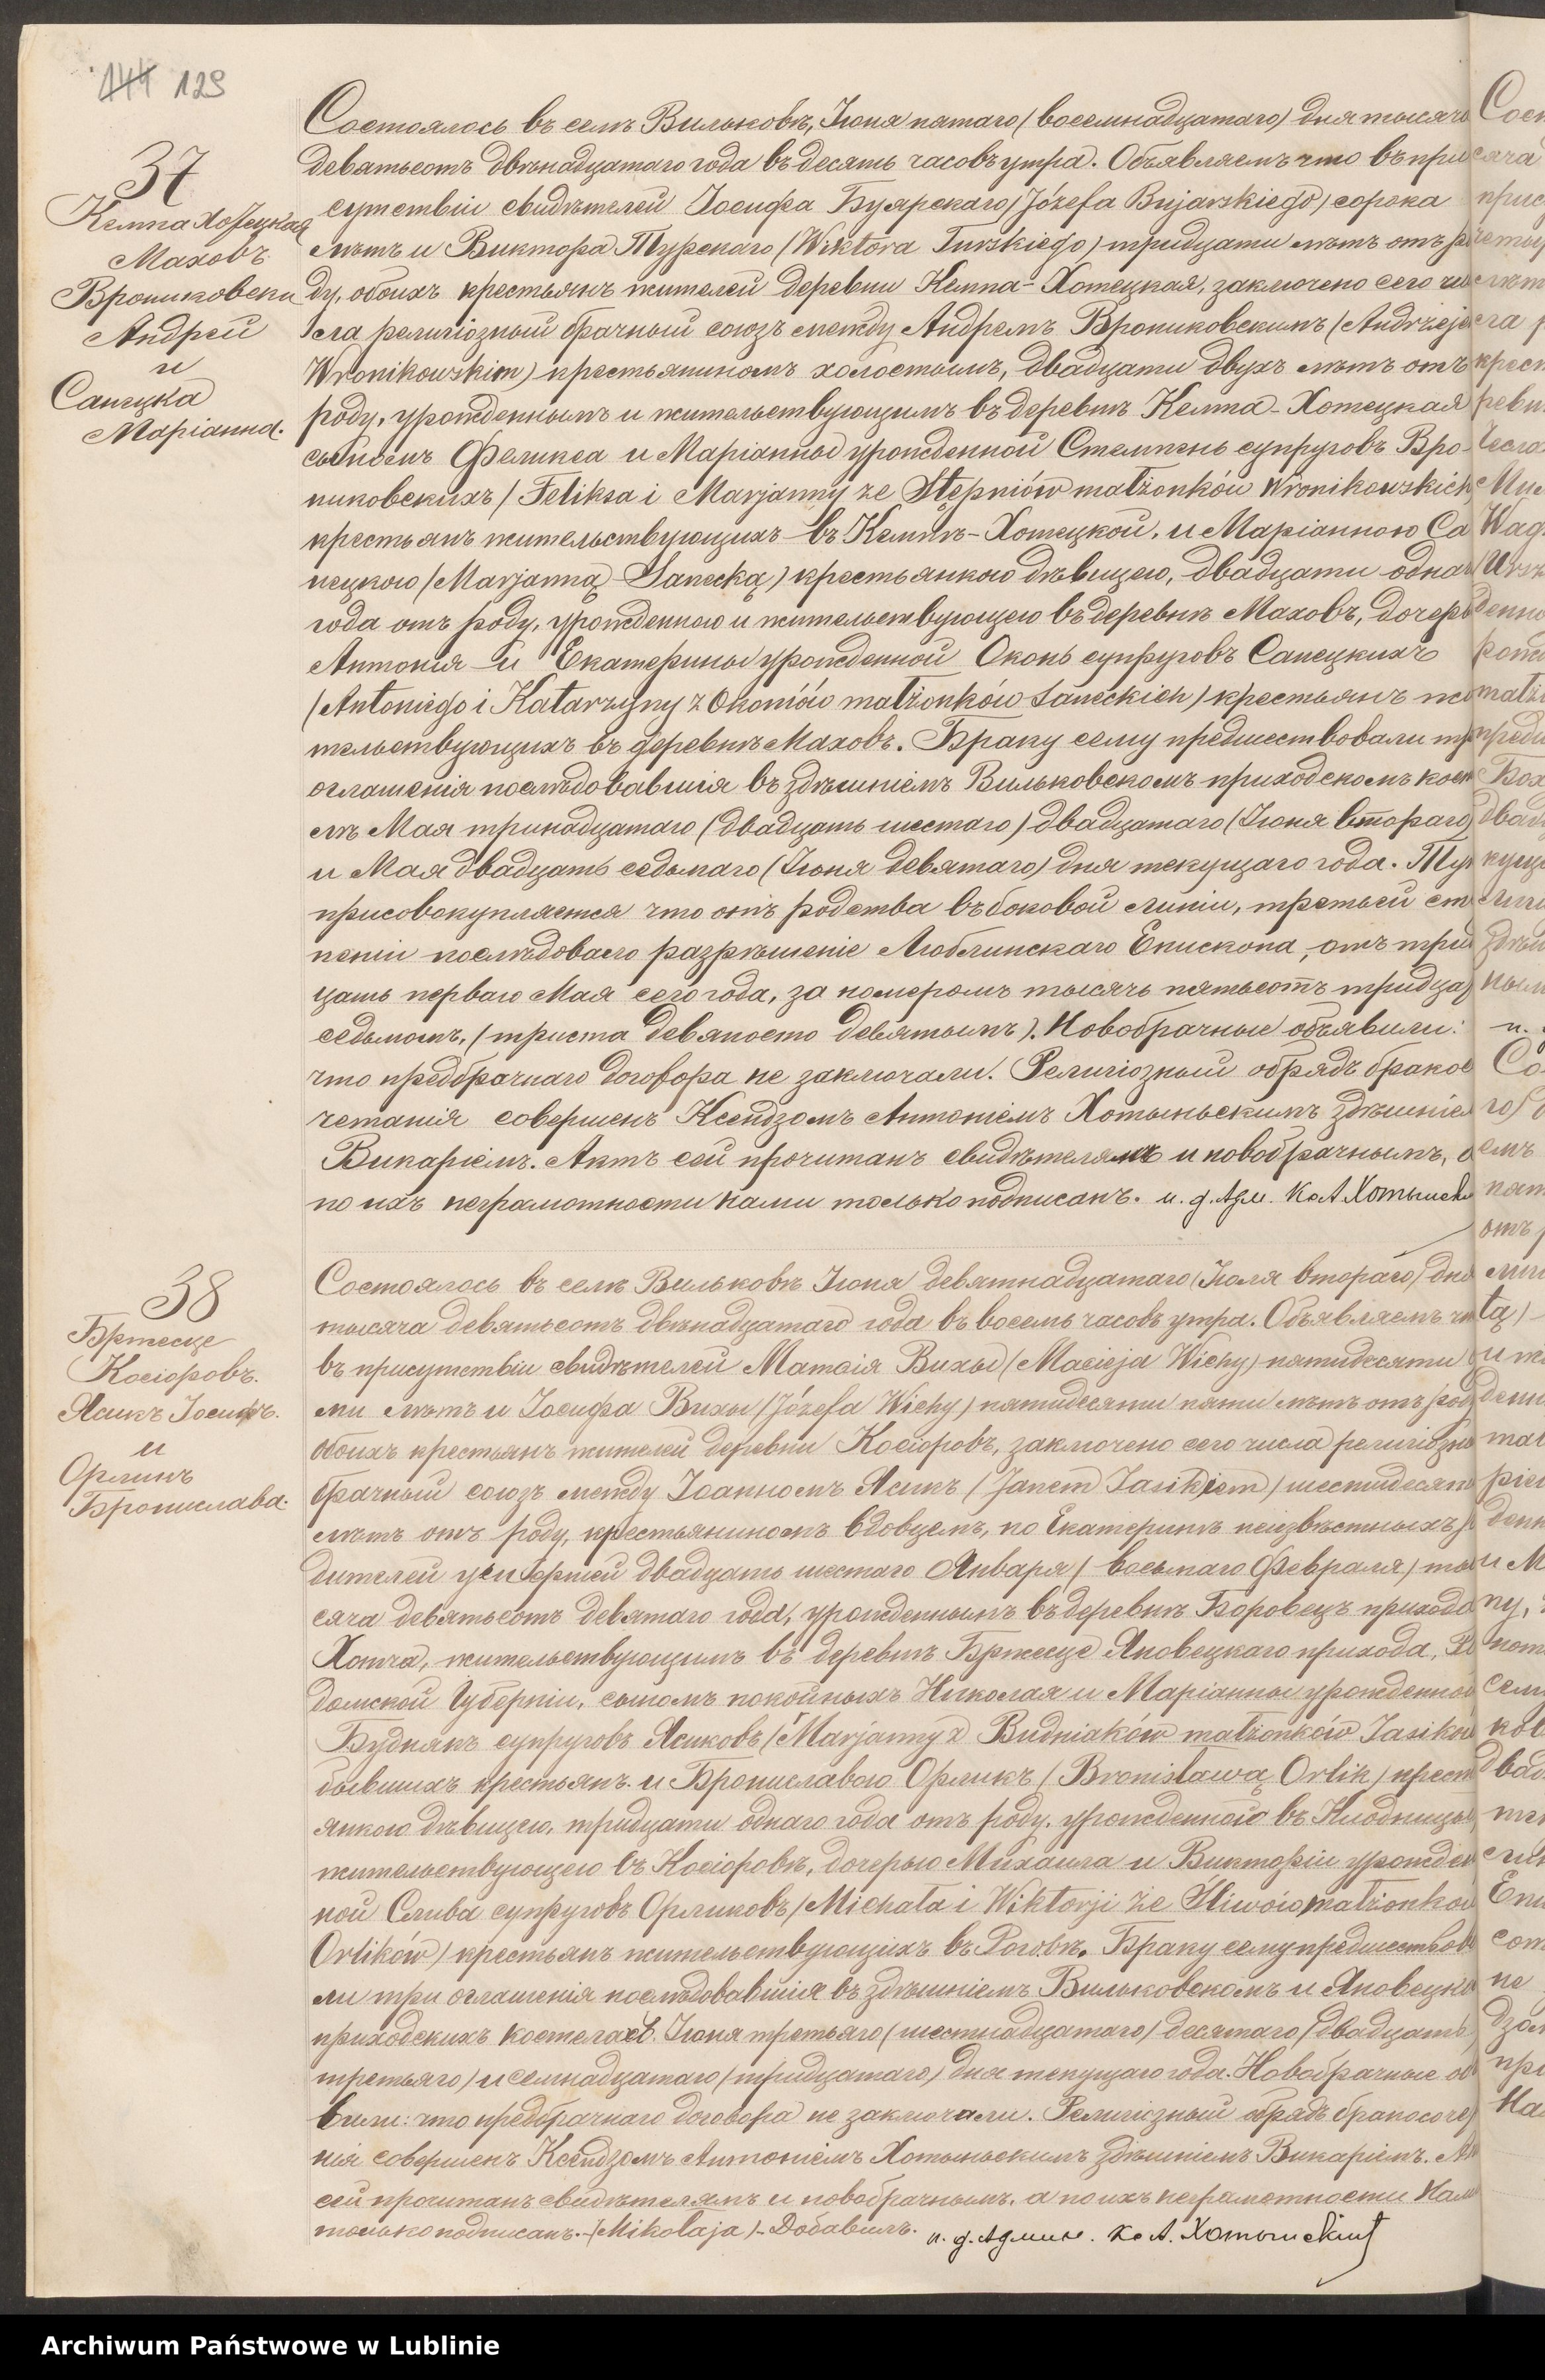 144 129
37
Кемпа Хотецкая
Маховъ
Врониковски
Андрей
и
Санецка
Маріанна.
Состоялось въ селѣ Вильковѣ, Іюня пятаго (восемнадцатаго) дня тысяча
девятьсотъ двѣнадцатаго года въ десять часовъ утра. Объявляемъ что въ при
сутствіи свидѣтелей Іосифа Буярскаго (Józefa Bujarskiego) сорока
лѣтъ и Виктора Турскаго (Wiktora Turskiego) тридцати лѣтъ отъ ро
ду, обоихъ крестьянъ жителей деревни Кемпа-Хотецкая, заключено сего чи
сла религіозный брачный союзъ между Андреемъ Врониковскимъ (Andrzeje
Wronikowskim) крестьяниномъ холостымъ, двадцати двухъ лѣтъ отъ
роду, урожденнымъ и жительствующимъ въ деревнѣ Кемпа-Хотецкая
сыномъ Феликса и Маріанны урожденной Стемпень супруговъ Вро-
никовскихъ (Feliksa i Marjanny ze Stępniów małżonków Wronikowskich
крестьянъ жительствующихъ въ Кемпѣ-Хотецкой, и Маріанною Са
нецкою (Marjanną Sanecką) крестьянкою дѣвицею, двадцати одна
года отъ роду, урожденною и жительствующею въ деревнѣ Маховъ, дочерь
Антонія и Екатерины урожденной Оконь супруговъ Санецкихъ
(Antoniego i Katarzyny z Okoniów małżonków Saneckich) крестьянъ жи
тельствующихъ въ деревнѣ Маховъ. Браку сему предшествовали тр
оглашенія послѣдовавшія въ здѣшнемъ Вильковскомъ приходскомъ кост
лѣ Мая тринадцатаго (двадцать шестаго) двадцатаго (Іюня втораго)
и Мая двадцать седьмаго (Іюня девятаго) дня текущаго года. Ту
присовокупляется что отъ родства въ боковой линіи, третьей ст
пени послѣдовало разрѣшеніе Люблинскаго Епископа, отъ трид
цать перваго Мая сего года, за номеромъ тысячь пятьсотъ тридца
седьмомъ, (триста девяносто девятымъ). Новобрачные объявили:
что предбрачнаго договора не заключали. Религіозный обрядъ бракос
четанія совершенъ Ксендзомъ Антоніемъ Хотыньскимъ здѣшніем
Викаріемъ. Актъ сей прочитанъ свидѣтелямъ и новобрачнымъ, а
по ихъ неграмотности нами только подписанъ. и. д. Адм. Кс. А Хотынск
38
Бржесце
Косіоровъ.
Ясикъ Іосифъ.
и
Орликъ
Бронислава.
Состоялось въ селѣ Вильковѣ Іюня девятнадцатаго (Іюля втораго) дня
тысяча девятьсотъ двѣнадцатаго года въ восемь часовъ утра. Объявляемъ чт
въ присутствіи свидѣтелей Матвія Вихы (Macieja Wichy) пятидесяти
ми лѣтъ и Іосифа Вихы (Józefa Wichy) пятидесяти пяти лѣтъ отъ роду
обоихъ крестьянъ жителей деревни Косіоровъ, заключено сего числа религіозны
брачный союзъ между Іоанномъ Ясикъ (Janem Jasikiem) шестидесяти
лѣтъ отъ роду, крестьяниномъ вдовцемъ, по Екатеринѣ неизвѣстныхъ р
дителей умершей двадцать шестаго Января (восьмаго Февраля) ты
сяча девятьсотъ девятаго года, урожденнымъ въ деревнѣ Боровецъ прихода
Хотча, жительствующимъ въ деревнѣ Бржесце Яновецкаго прихода, Ра
домской Губерніи, сыномъ покойныхъ Николая и Маріанны урожденной
Буднякъ супруговъ Ясиковъ (Marjanny z Budniaków małżonków Jasików
бывшихъ крестьянъ. и Брониславою Орликъ (Bronisławą Orlik) крест
янкою дѣвицею, тридцати однаго года отъ роду, урожденною въ Ніодницы,
жительствующею въ Косіоровѣ, дочерью Михаила и Викторіи урожден
ной Слива супруговъ Орликовъ (Michała i Wiktorji ze Śliwów małżonków
Orlików) крестьянъ жительствующихъ въ Роговѣ. Браку сему предшествова
ли три оглашенія послѣдовавшія въ здѣшніемъ Вильковскомъ и Яновецко
приходскихъ костелахъ. Іюня третьяго (шестнадцатаго) десятаго (двадцать
третьяго) и семнадцатаго (тридцатаго) дня текущаго года. Новобрачные об
вили: что предбрачнаго договора не заключали. Религіозный обрядъ бракосоче
нія совершенъ Ксендзомъ Антоніемъ Хотыньскимъ здѣшніемъ Викаріемъ. Ак
сей прочитанъ свидѣтелямъ и новобрачнымъ, а по ихъ неграмотности нами
только подписанъ.-(Mikołaja)-Добавилъ. и. д. Админ. Кс. А. Хотынскій
Archiwum Państwowe w Lublinie